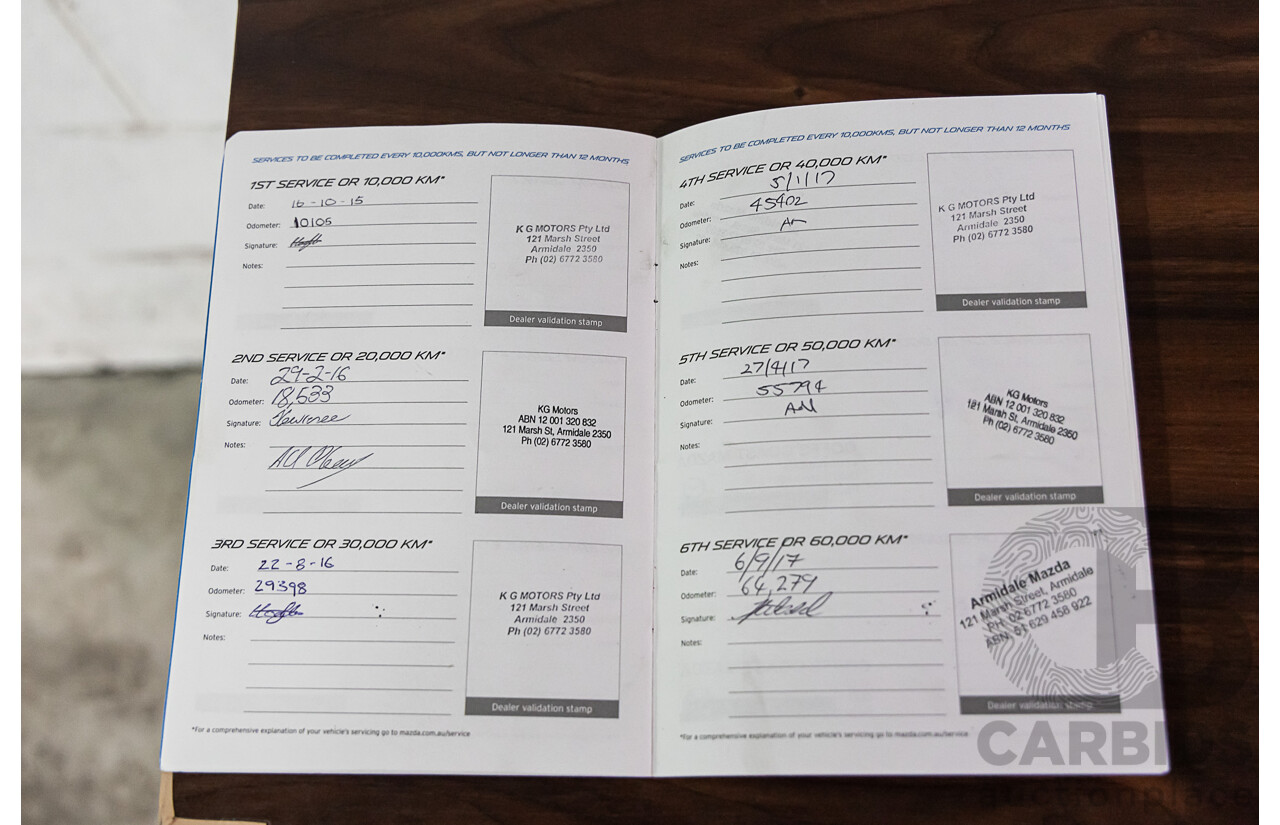 SERVICES TO BE COMPLETED EVERY 10,000KMS, BUT NOT LONGER THAN 12 MONTHS
1ST SERVICE OR 10,000 KM*
Date: 16-10-15
Odometer: 10105
Signature:
Notes:
K G MOTORS Pty Ltd
121 Marsh Street
Armidale 2350
Ph (02) 6772 3580
Dealer validation stamp
2ND SERVICE OR 20,000 KM*
Date: 29-2-16
Odometer: 18,533
Signature:
Notes:
KG Motors
ABN 12 001 320 832
121 Marsh St, Armidale 2350
Ph (02) 6772 3580
Dealer validation stamp
3RD SERVICE OR 30,000 KM*
Date: 22-8-16
Odometer: 29398
Signature:
Notes:
K G MOTORS Pty Ltd
121 Marsh Street
Armidale 2350
Ph (02) 6772 3580
Dealer validation stamp
*For a comprehensive explanation of your vehicle's servicing go to mazda.com.au/service
SERVICES TO BE COMPLETED EVERY 10,000KMS, BUT NOT LONGER THAN 12 MONTHS
4TH SERVICE OR 40,000 KM*
Date: 5/1/17
Odometer: 45402
Signature:
Notes:
K G MOTORS Pty Ltd
121 Marsh Street
Armidale 2350
Ph (02) 6772 3580
Dealer validation stamp
5TH SERVICE OR 50,000 KM*
Date: 27/4/17
Odometer: 55794
Signature:
Notes:
KG Motors
ABN 12 001 320 832
121 Marsh St, Armidale 2350
Ph (02) 6772 3580
Dealer validation stamp
6TH SERVICE OR 60,000 KM*
Date: 6/9/17
Odometer: 64,279
Signature:
Notes:
Armidale Mazda
121 Marsh Street, Armidale
PH: 02 6772 3580
ABN: 51 629 458 922
Dealer validation stamp
*For a comprehensive explanation of your vehicle's servicing go to mazda.com.au/service
CARBI
auctionplace